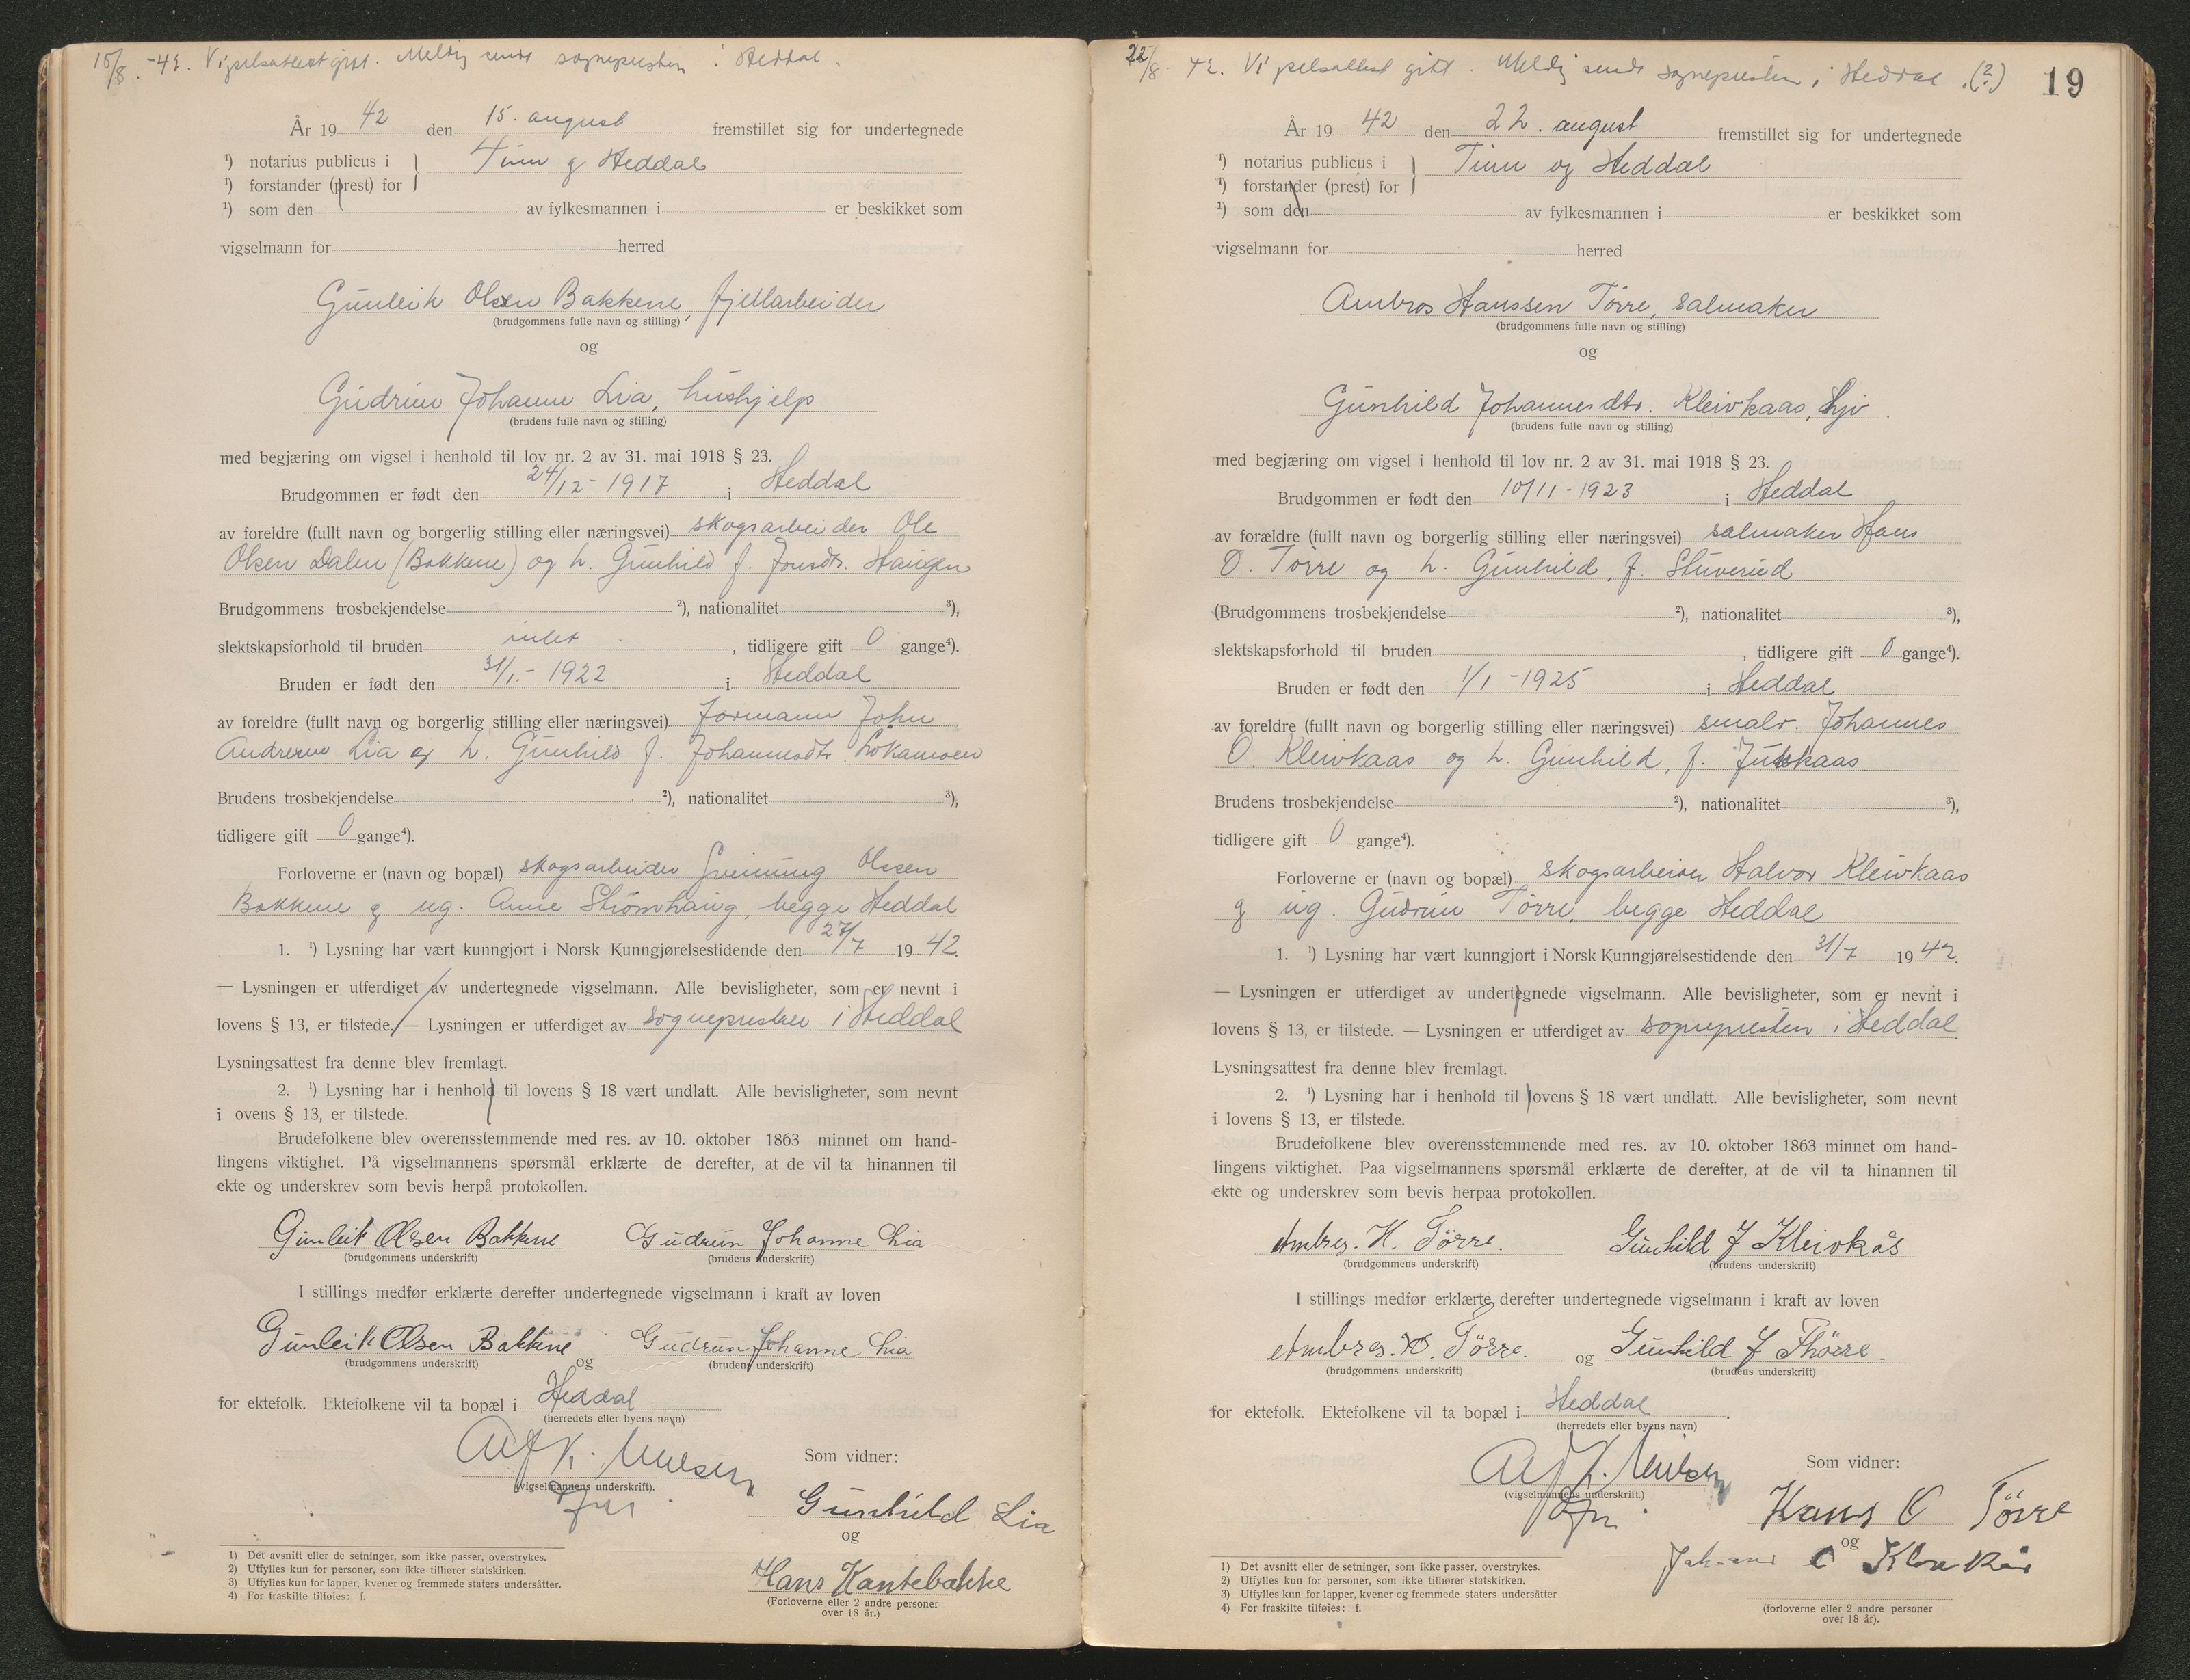 15/8 -42. Vigselsattest gitt. Melding sendt sognepresten i Heddal.
År 19 42 den 15. august fremstillet sig for undertegnede
¹) notarius publicus i } Tinn og Heddal
¹) forstander (prest) for
¹) som den av fylkesmannen i er beskikket som
vigselmann for herred
Gunleik Olsen Bakkene, fjellarbeider
(brudgommens fulle navn og stilling)
og
Gudrun Johanne Lia, hushjelp
(brudens fulle navn og stilling)
med begjæring om vigsel i henhold til lov nr. 2 av 31. mai 1918 § 23.
Brudgommen er født den 24/12 - 1917 i Heddal
av foreldre (fullt navn og borgerlig stilling eller næringsvei) skogsarbeider Ole
Olsen Dalen (Bakkene) og h. Gunhild f. Jonsdtr. Haugen
Brudgommens trosbekjendelse ²), nationalitet ³),
slektskapsforhold til bruden intet, tidligere gift 0 gange⁴).
Bruden er født den 31/1. - 1922 i Heddal
av foreldre (fullt navn og borgerlig stilling eller næringsvei) formann John
Andreas Lia og h. Gunhild f. Johannesdtr.
Brudens trosbekjendelse ²), nationalitet ³),
tidligere gift 0 gange⁴).
Forloverne er (navn og bopæl) skogsarbeider Sveinung Olsen
Bakkene og ug. Anne Strømhaug, begge Heddal
1. ¹) Lysning har vært kunngjort i Norsk Kunngjørelsestidende den 27/7 19 42.
— Lysningen er utferdiget av undertegnede vigselmann. Alle bevisligheter, som er nevnt i
lovens § 13, er tilstede. — Lysningen er utferdiget av sognepresten i Heddal
Lysningsattest fra denne blev fremlagt.
2. ¹) Lysning har i henhold til lovens § 18 vært undlatt. Alle bevisligheter, som nevnt
i ovens § 13, er tilstede.
Brudefolkene blev overensstemmende med res. av 10. oktober 1863 minnet om hand-
lingens viktighet. På vigselmannens spørsmål erklærte de derefter, at de vil ta hinannen til
ekte og underskrev som bevis herpå protokollen.
Gunleik Olsen Bakkene Gudrun Johanne Lia
(brudgommens underskrift) (brudens underskrift)
I stillings medfør erklærte derefter undertegnede vigselmann i kraft av loven
Gunleik Olsen Bakkene og Gudrun Johanne Lia
(brudgommens underskrift) (brudens underskrift)
for ektefolk. Ektefolkene vil ta bopæl i Heddal
(herredets eller byens navn)
Alf K. Nielsen
(vigselmannens underskrift).
Som vidner:
Gunhild Lia
og
Hans Kantebakke
(Forloverne eller 2 andre personer
over 18 år.)
1) Det avsnitt eller de setninger, som ikke passer, overstrykes.
2) Utfylles kun for personer, som ikke tilhører statskirken.
3) Utfylles kun for lapper, kvener og fremmede staters undersåtter.
4) For fraskilte tilføies: f.
22/8 42. Vigselsattest gitt. Melding sendt sognepresten i Heddal. (?)
19
År 19 42 den 22. august fremstillet sig for undertegnede
¹) notarius publicus i } Tinn og Heddal
¹) forstander (prest) for
¹) som den av fylkesmannen i er beskikket som
vigselmann for herred
Ambros Hanssen Tørre, salmaker
(brudgommens fulle navn og stilling)
og
Gunhild Johannesdtr. Kleivkaas, hjv.
(brudens fulle navn og stilling)
med begjæring om vigsel i henhold til lov nr. 2 av 31. mai 1918 § 23.
Brudgommen er født den 10/11 - 1923 i Heddal
av forældre (fullt navn og borgerlig stilling eller næringsvei) salmaker Hans
O. Tørre og h. Gunhild, f. Stuverud
(Brudgommens trosbekjendelse ²), nationalitet ³),
slektskapsforhold til bruden , tidligere gift 0 gange⁴).
Bruden er født den 1/1 - 1925 i Heddal
av foreldre (fullt navn og borgerlig stilling eller næringsvei) smabr. Johannes
O. Kleivkaas og h. Gunhild, f. Juvkaas
Brudens trosbekjendelse ²), nationalitet ³),
tidligere gift 0 gange⁴).
Forloverne er (navn og bopæl) skogsarbeider Halvor Kleivkaas
og ug. Gudrun Tørre, begge Heddal
1. ¹) Lysning har vært kunngjort i Norsk Kunngjørelsestidende den 31/7 19 42.
— Lysningen er utferdiget av undertegnede vigselmann. Alle bevisligheter, som er nevnt i
lovens § 13, er tilstede. — Lysningen er utferdiget av sognepresten i Heddal
Lysningsattest fra denne blev fremlagt.
2. ¹) Lysning har i henhold til lovens § 18 vært undlatt. Alle bevisligheter, som nevnt
i lovens § 13, er tilstede.
Brudefolkene blev overensstemmende med res. av 10. oktober 1863 minnet om hand-
lingens viktighet. Paa vigselmannens spørsmål erklærte de derefter, at de vil ta hinannen til
ekte og underskrev som bevis herpaa protokollen.
Ambros. H. Törre. Gunhild J Kleivkås
(brudgommens underskrift) (brudens underskrift)
I stillings medfør erklærte derefter undertegnede vigselmann i kraft av loven
Ambros. H. Törre. og Gunhild J Thörre.
(brudgommens underskrift) (brudens underskrift)
for ektefolk. Ektefolkene vil ta bopæl i Heddal.
(herredets eller byens navn)
Alf K. Nielsen
(vigselmannens underskrift.)
Som vidner:
Hans O Törre
og
Johannes O Kleivkås
(forloverne eller 2 andre personer
over 18 år).
1) Det avsnitt eller de setninger, som ikke passer, overstrykes.
2) Utfylles kun for personer, som ikke tilhører statskirken.
3) Utfylles kun for lapper, kvener og fremmede staters undersåtter
4) For fraskilte tilføies: f.